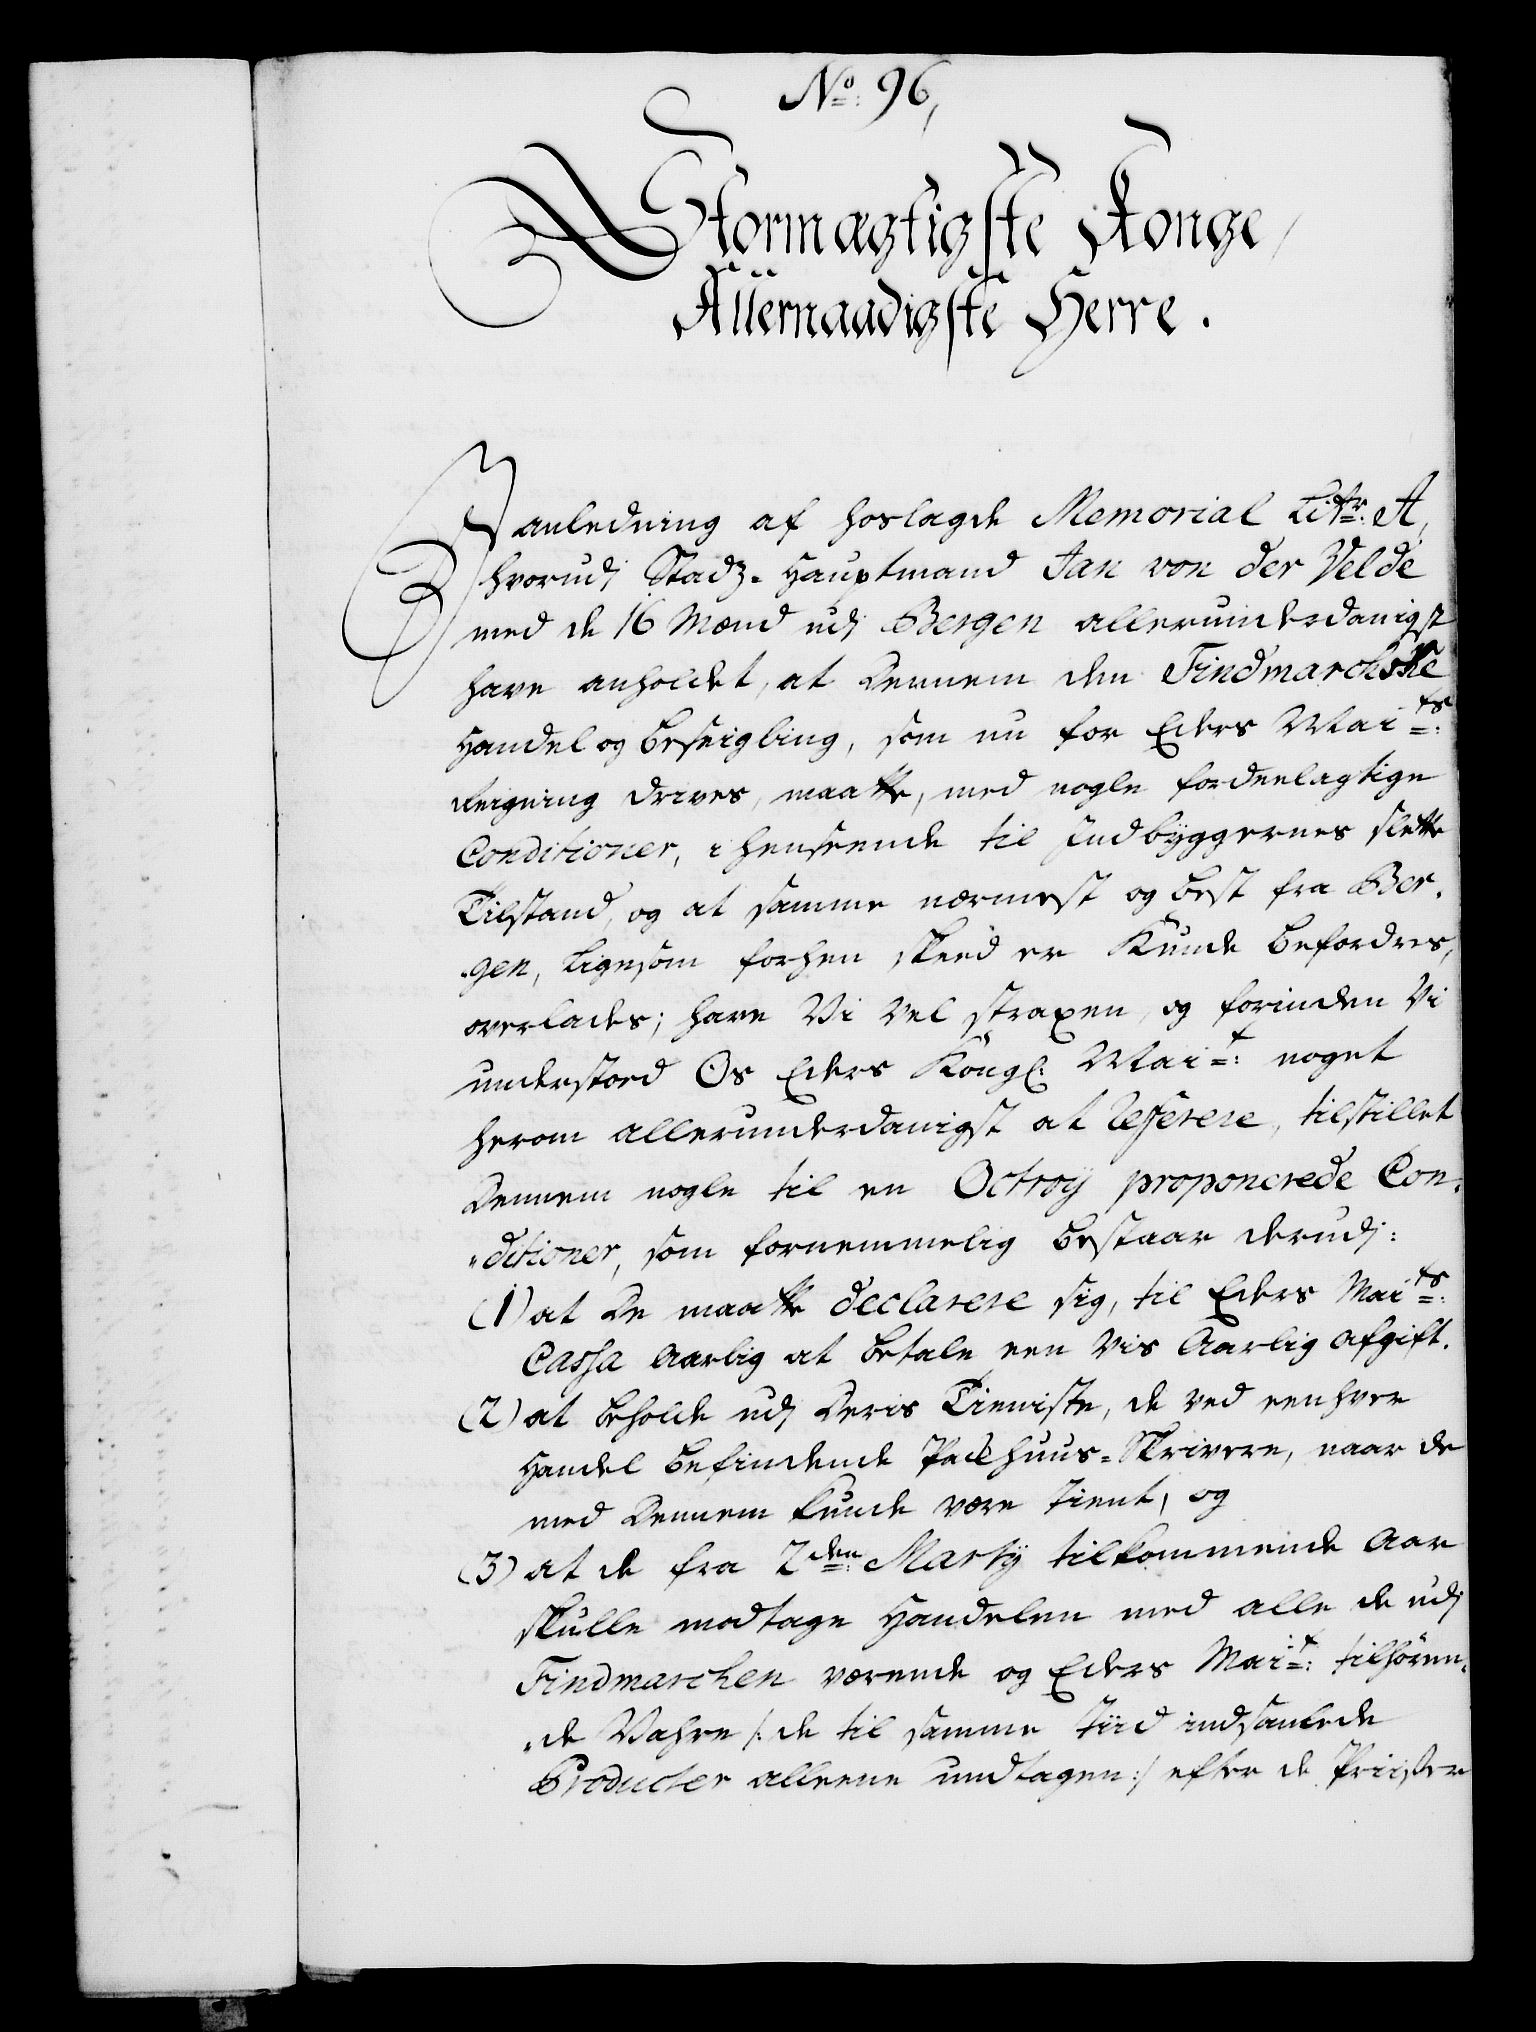 No: 96,
Stormægtigste Konge,
Allernaadigste Herre.
I anledning af hoslagde Memorial Litr: A,
hvorudj Stadz-Hauptmand Jan von der Velde
med de 16 Mænd udj Bergen allerunderdanigst
have anholdet, at Dennem den Findmarchske
Handel og Beseigling, som nu for Eders Maits:
Reigning drives, maatte, med nogle fordeelagtige
Conditioner, i henseende til Indbyggernes slette
Tilstand, og at samme nærmest og best fra Ber-
-gen, ligesom forhen skeed er kunde befordres,
overlades; have Vi vel straxen, og forinden Vi
understoed Os Eders Kongl: Mait: noget
herom allerunderdanigst at referere, tilstillet
Dennem nogle til en Octroy proponerede Con-
-ditioner, som fornemmelig bestaar derudj:
(1) at De maatte declarere sig, til Eders Maits:
Cassa Aarlig at betale een vis Aarlig afgift.
(2) at beholde udj Deris Tieniste, de ved eenhver
Handel befindende Pakhuus-Skrivere, naar de
med Dennem kunde være tient, og
(3) at de fra 2den: Martij tilkommende Aar
skulle modtage Handelen med alle de udj
Findmarchen værende og Eders Mait: tilhören-
-de Vahre /: de til samme Tiid indsamlede
Producter alleene undtagen :/ efter de Priiser